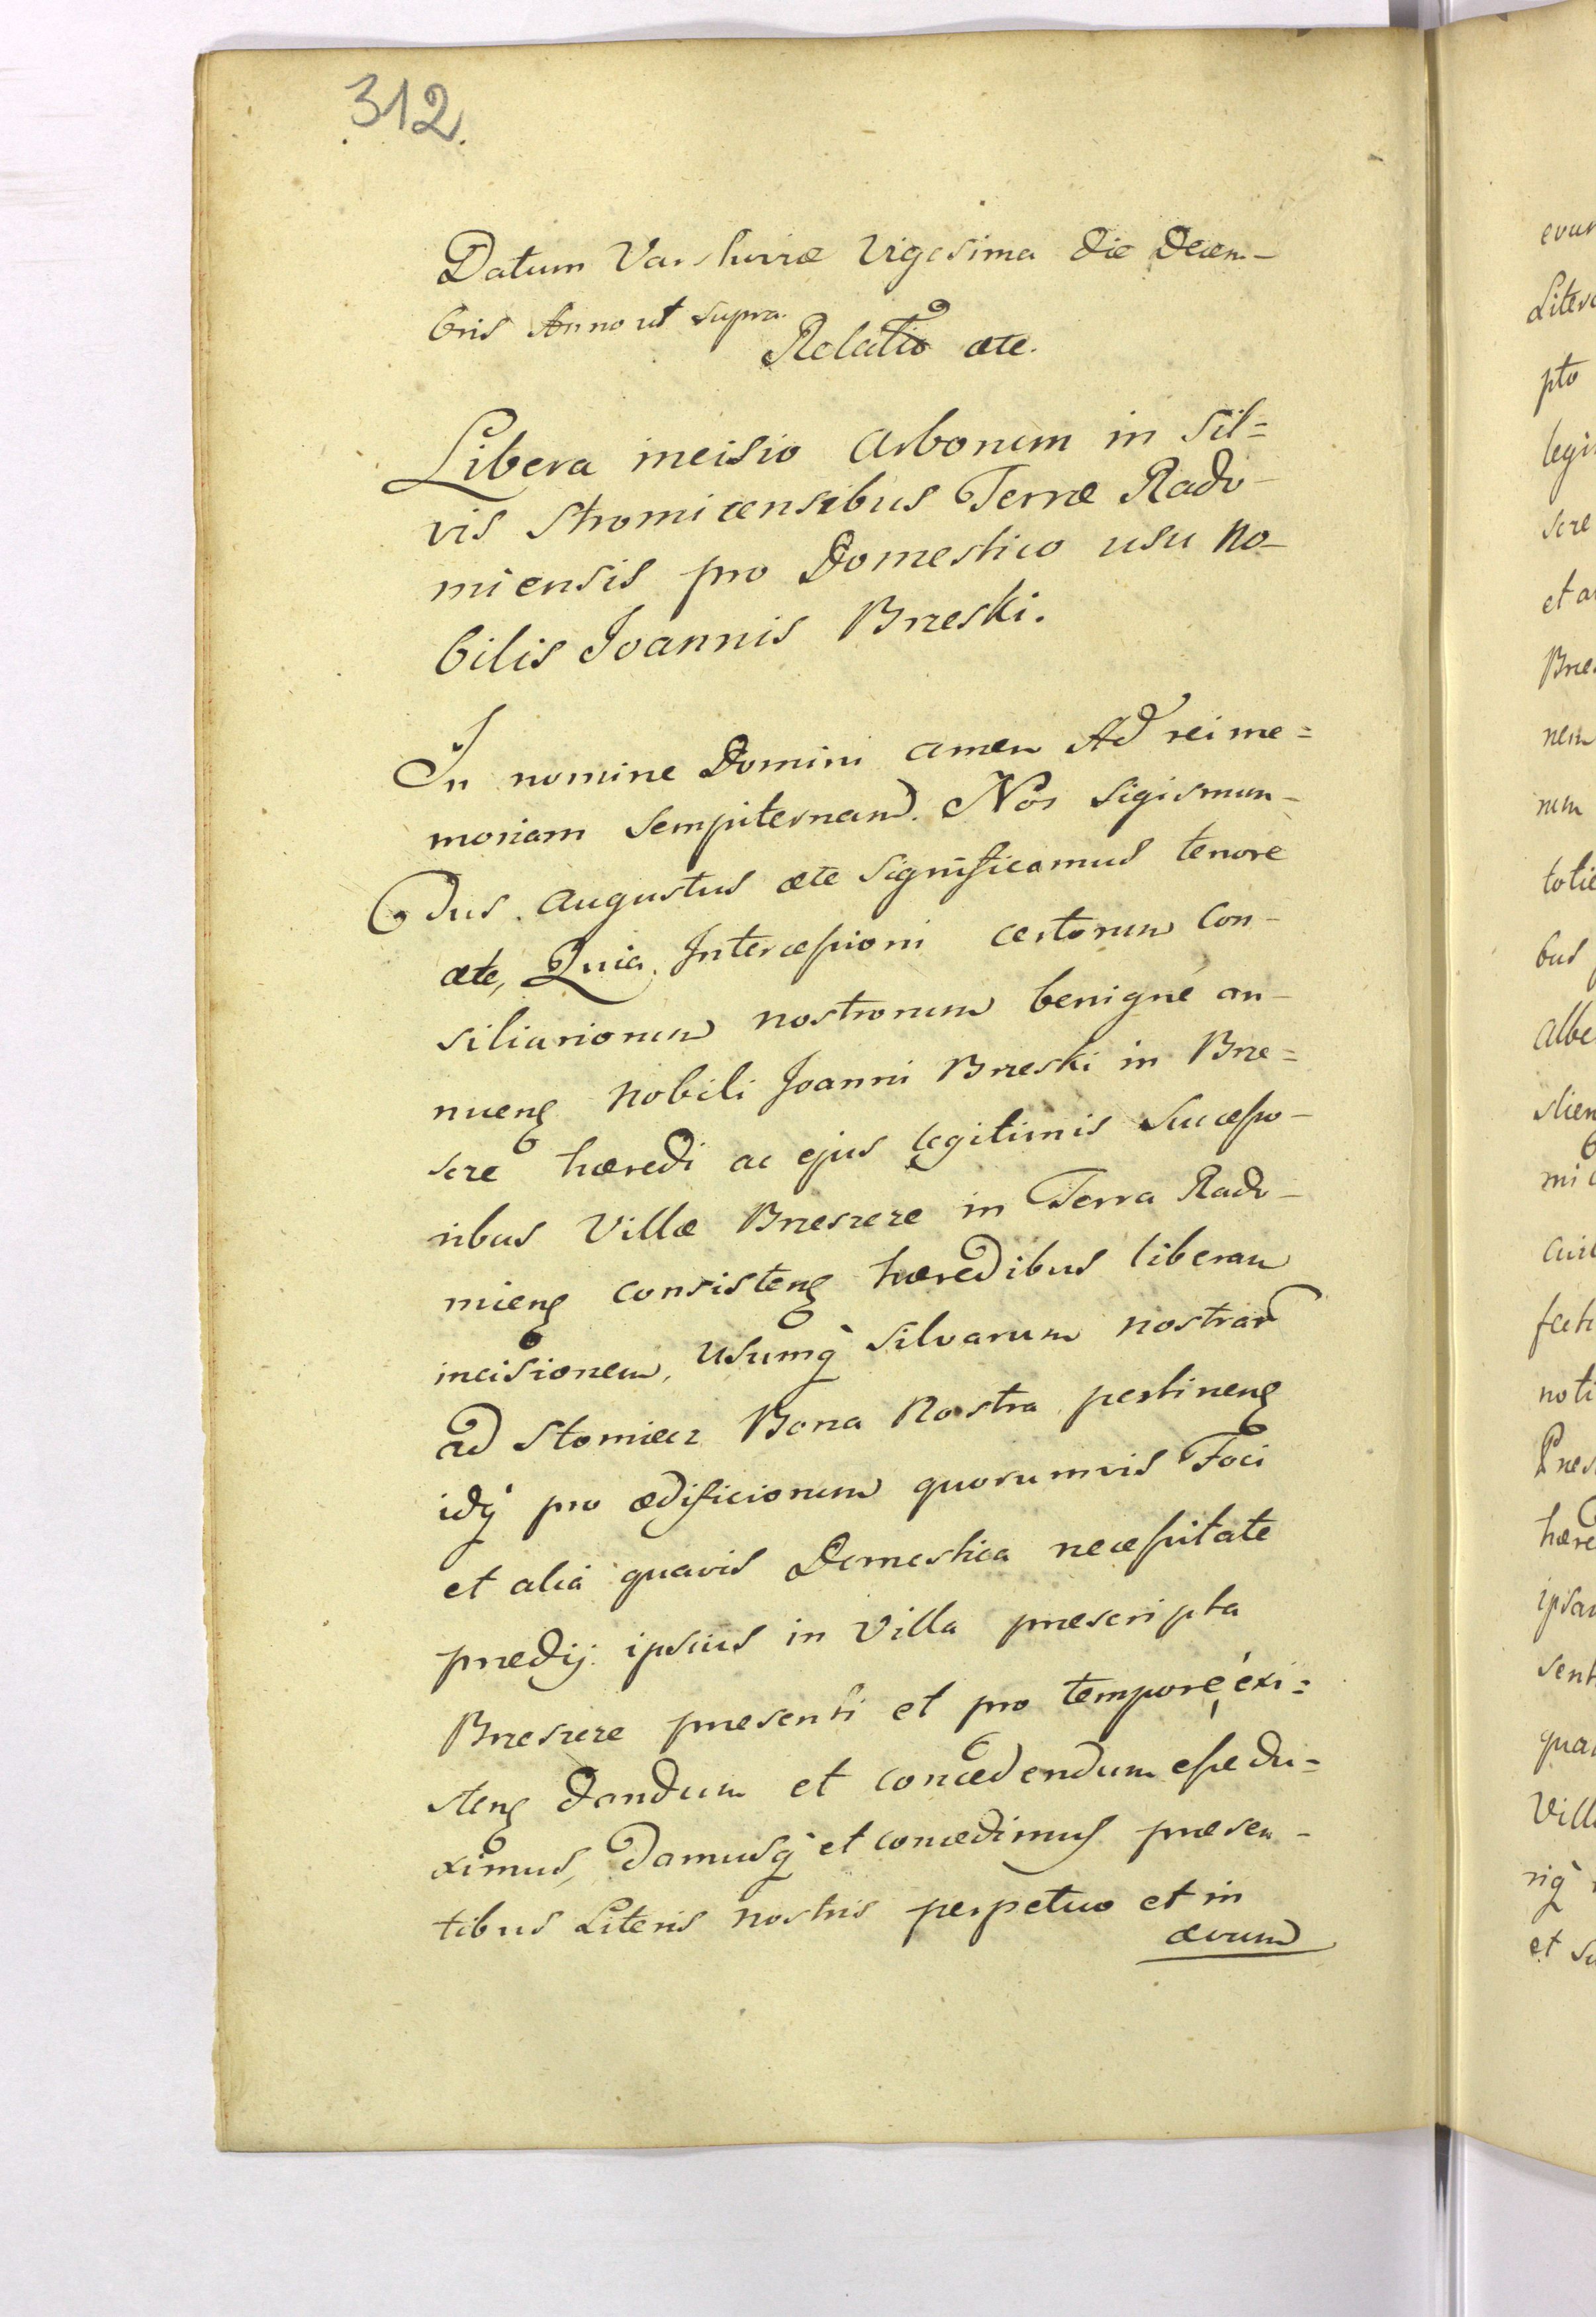 312.
Datum Varshaviæ Vigesima die Decem-
bris Anno ut supra.
Relatio etc.
Libera incisio Arborum in Sil=
vis Stromicensibus Terræ Rado-
miensis pro Domestico usu No-
bilis Joannis Brzeski.
In nomine Domini amen Ad rei me=
moriam sempiternam. Nos Sigismun-
dus Augustus etc significamus tenore
etc, Quia Intercessioni certorum Con-
siliariorum nostrorum benigne an-
nuen̄ Nobili Joanni Brzeski in Brze=
scze hæredi ac ejus legitimis Successo-
ribus Villæ Brzescze in Terra Rado-
mien̄ consisten̄ hæredibus liberam
incisionem, Usumq̀ silvarum nostrar̄
ad Stomiecz Bona Nostra pertinen̄
idq̀ pro ædificiorum quorumvis Foci
et alia quavis Domestica necessitate
prædij ipsius in Villa præscripta
Brzescze presenti et pro tempore exi=
sten̄ dandum et concedendum esse du=
ximus, damusq̀ et concedimus præsen-
tibus Literis nostris perpetuo et in
ævum
evum
Litera
pto
legi
scze
et a
Brzes
nem
num
totie
bus
Albe
stien
mi
cui
fecti
noti
Pres
hære
ipsa
sent
qua
Villa
riq̀
et su